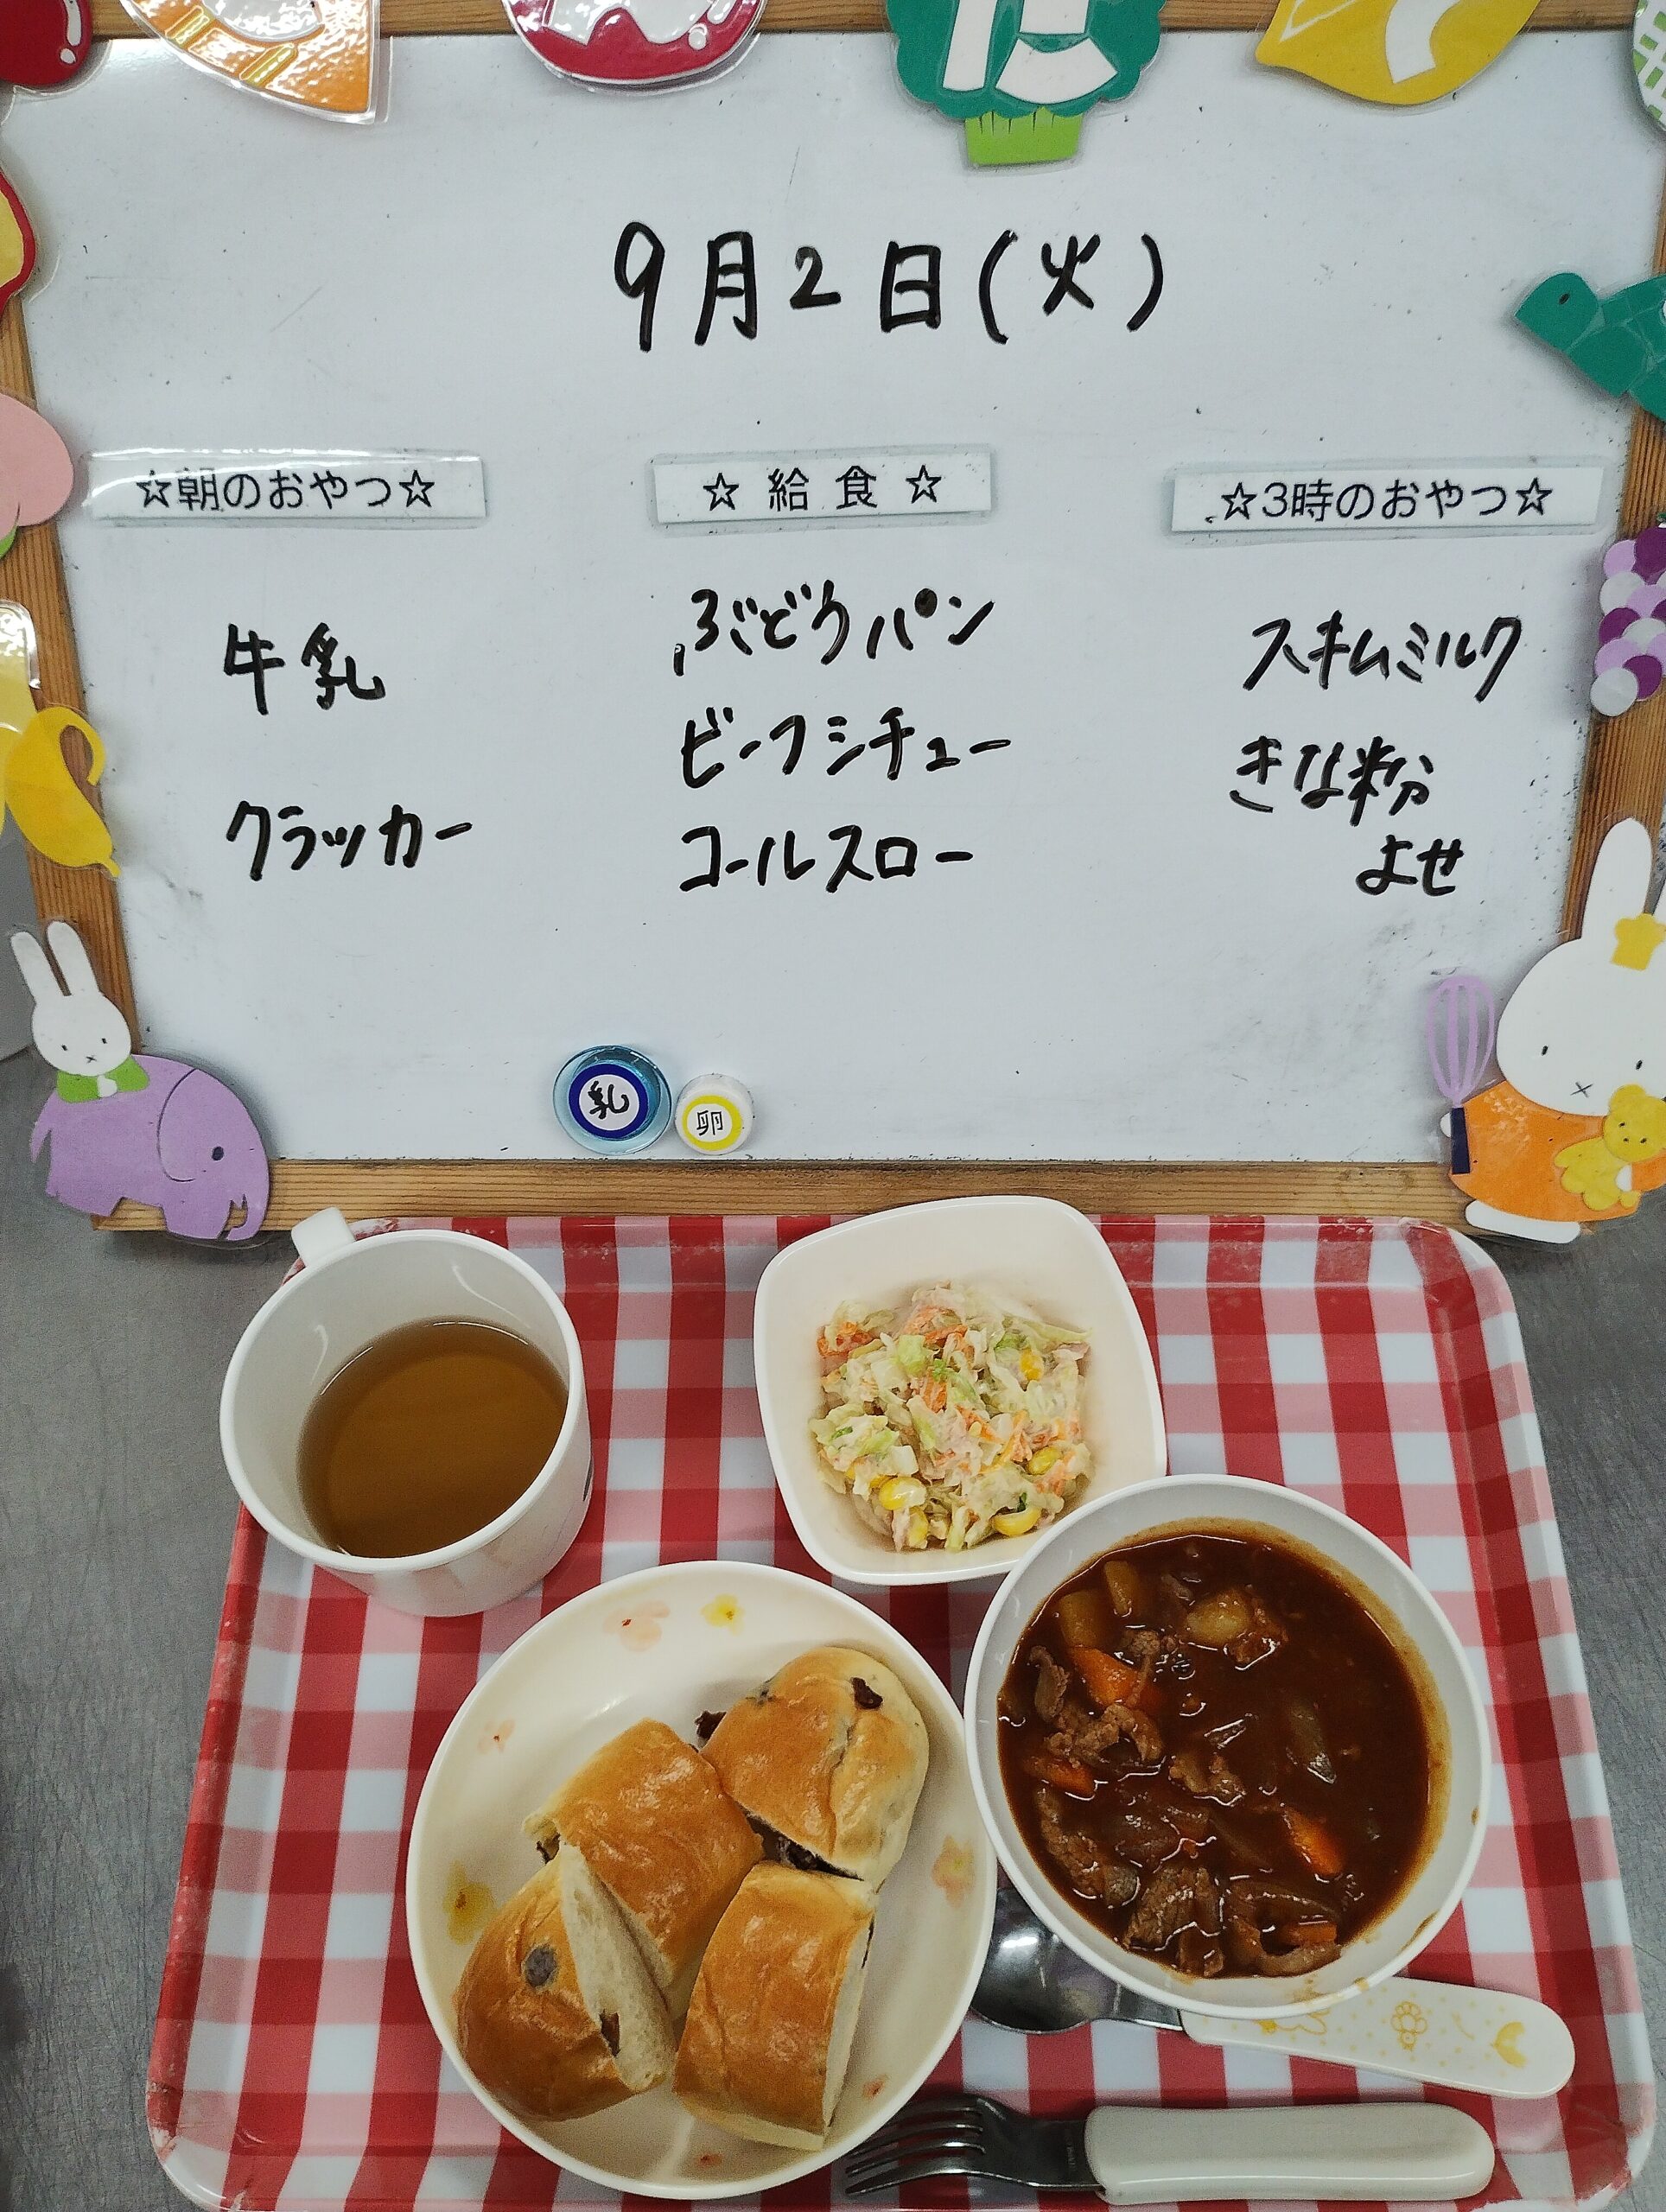 9月2日(火)
☆朝のおやつ☆
牛乳
クラッカー
☆給食☆
ぶどうパン
ビーフシチュー
コールスロー
☆3時のおやつ☆
スキムミルク
きな粉
よせ
乳
卵